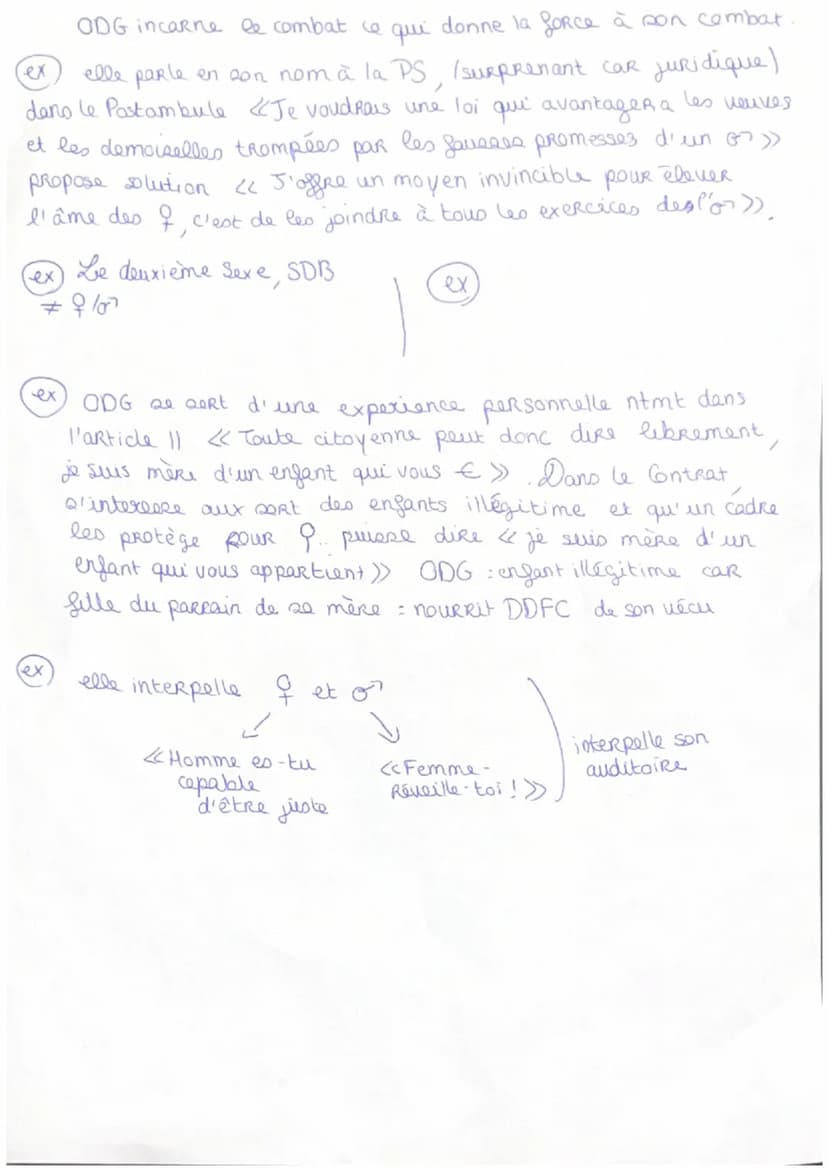 ODG incarne le combat ce qui donne la force à son combat.
ex elle parle en son nom à la PS, (surprenant car juridique)
dans le Postambule «Je voudrais une loi qui avantagera les veuves
et les demoiselles trompées par les fausses promesses d'un ♂»
propose solution «J'offre un moyen invincible pour élever
l'âme des ♀, c'est de les joindre à tous les exercices des l'♂».
ex Le deuxième Sexe, SDB
≠ ♀/♂
ex
ex ODG se sert d'une experience personnelle ntmt dans
l'article 11 «Toute citoyenne peut donc dire librement,
je suis mère d'un enfant qui vous €». Dans le Contrat,
s'interesse aux sort des enfants illégitime et qu'un cadre
les protège pour ♀.. puisse dire «je suis mère d'un
enfant qui vous appartient» ODG : enfant illégitime car
fille du parrain de sa mère = nourrit DDFC de son vécu
ex elle interpelle ♀ et ♂
«Homme es-tu
capable
d'être juste
«Femme-
Réveille-toi !»
interpelle son
auditoire